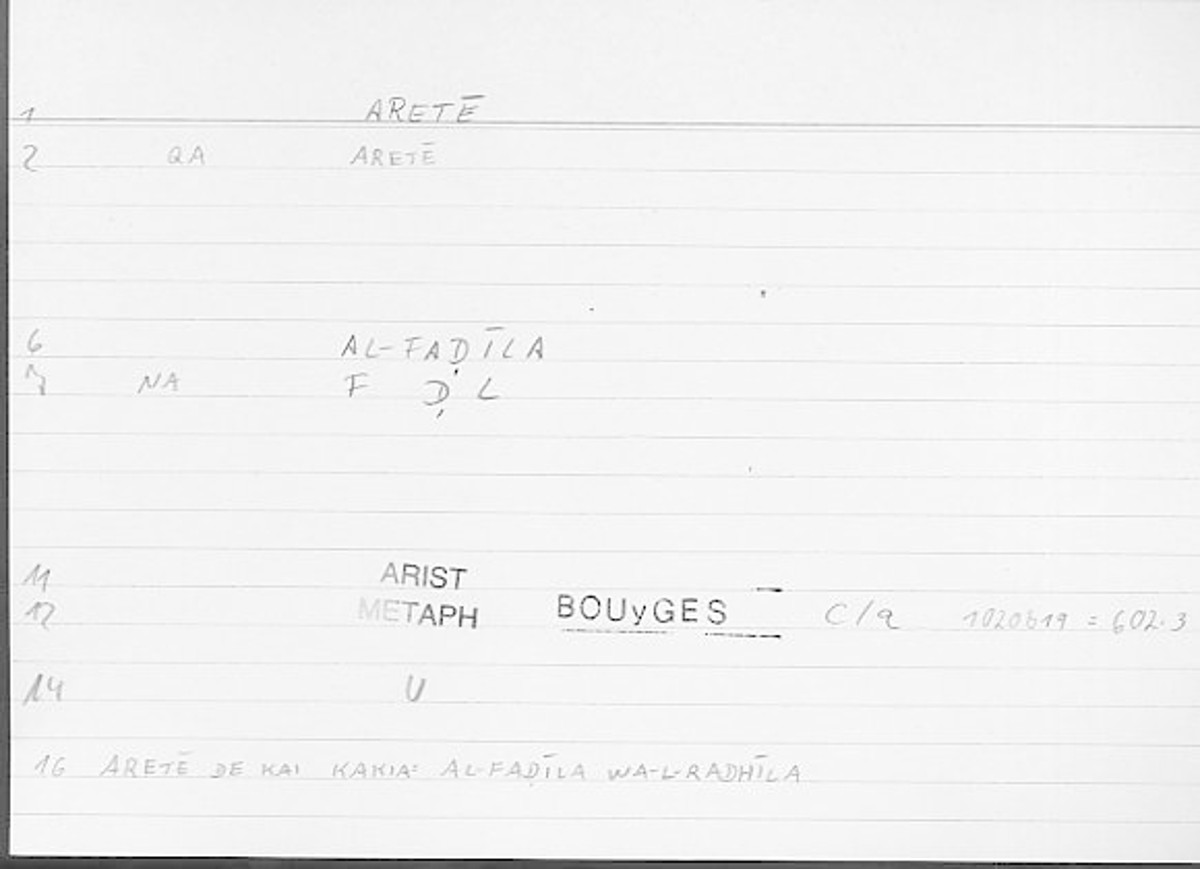 1 ARETĒ
2 QA ARETĒ
6 AL-FAḌĪLA
7 NA F Ḍ L
11 ARIST
12 METAPH BOUyGES C/a 1020b19 = 602.3
14 U
16 ARETĒ DE KAI KAKIA: AL-FAḌĪLA WA-L-RADHĪLA